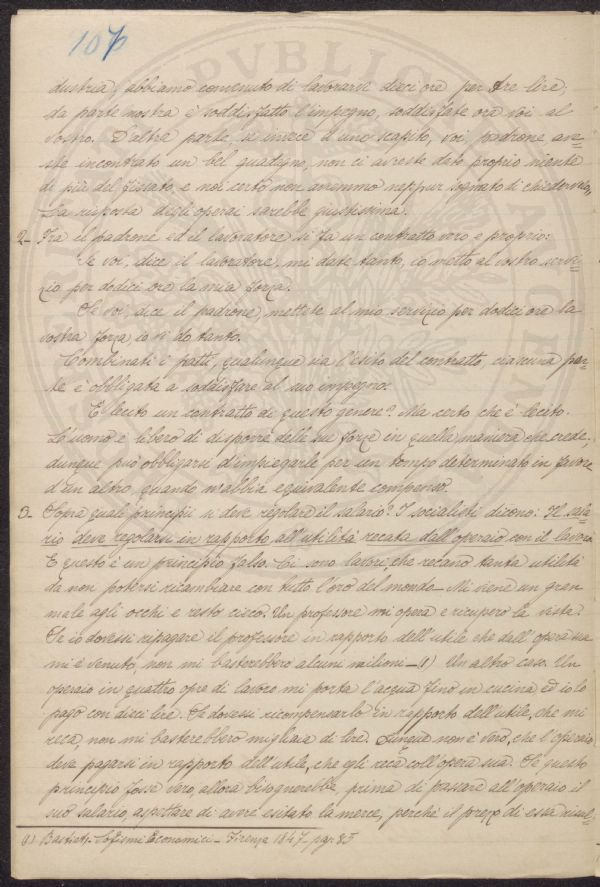 107
dustria, abbiamo convenuto di lavorarvi dieci ore per tre lire;
da parte nostra è soddisfatto l'impegno, soddisfate ora voi al
vostro. D'altra parte se invece d'uno scapito, voi, padrone ave-
ste incontrato un bel guadagno, non ci avreste dato proprio niente
di più del fissato, e noi certo non avremmo neppur sognato di chiedervelo,
La risposta degli operai sarebbe giustissima.
2- Fra il padrone ed il lavoratore si fa un contratto vero e proprio:
Se voi, dice il lavoratore, mi date tanto, io metto al vostro servi-
zio per dodici ore la mia forza.
Se voi, dice il padrone, mettete al mio servizio per dodici ore la
vostra forza io vi do tanto.
Combinati i patti, qualunque sia l'esito del contratto, ciascuna par-
te è obbligata a soddisfare al suo impegno.
È lecito un contratto di questo genere? Ma certo che è lecito.
L'uomo è libero di disporre delle sue forze in quella maniera che crede,
dunque può obbligarsi d'impiegarle per un tempo determinato in favore
d'un altro, quando n'abbia equivalente compenso.
3- Sopra quale principii si deve regolare il salario? I socialisti dicono: Il sala-
rio deve regolarsi in rapporto all'utilità recata dall'operaio con il lavoro.
E questo è un principio falso. Ci sono lavori, che recano tanta utilità
da non potersi ricambiare con tutto l'oro del mondo_ Mi viene un gran
male agli occhi e resto cieco. Un professore mi opera e ricupero la vista.
Se io dovessi ripagare il professore in rapporto dell'utile che dall'opera sua
mi è venuto, non mi basterebbero alcuni milioni_(1) Un altro caso. Un
operaio in quattro opre di lavoro mi porta l'acqua fino in cucina ed io lo
pago con dieci lire. Se dovessi ricompensarlo in rapporto dell'utile, che mi
reca, non mi basterebbero migliaia di lire. Dunque non è vero, che l'operaio
deve pagarsi in rapporto dell'utile, che egli reca coll'opera sua. Se questo
principio fosse vero, allora bisognerebbe, prima di passare all'operaio il
suo salario, aspettare di avere esitato la merce, perchè il prezzo di essa risul-
(1) Bastiat- Sofismi Economici_ Firenze 1847_ pag. 85